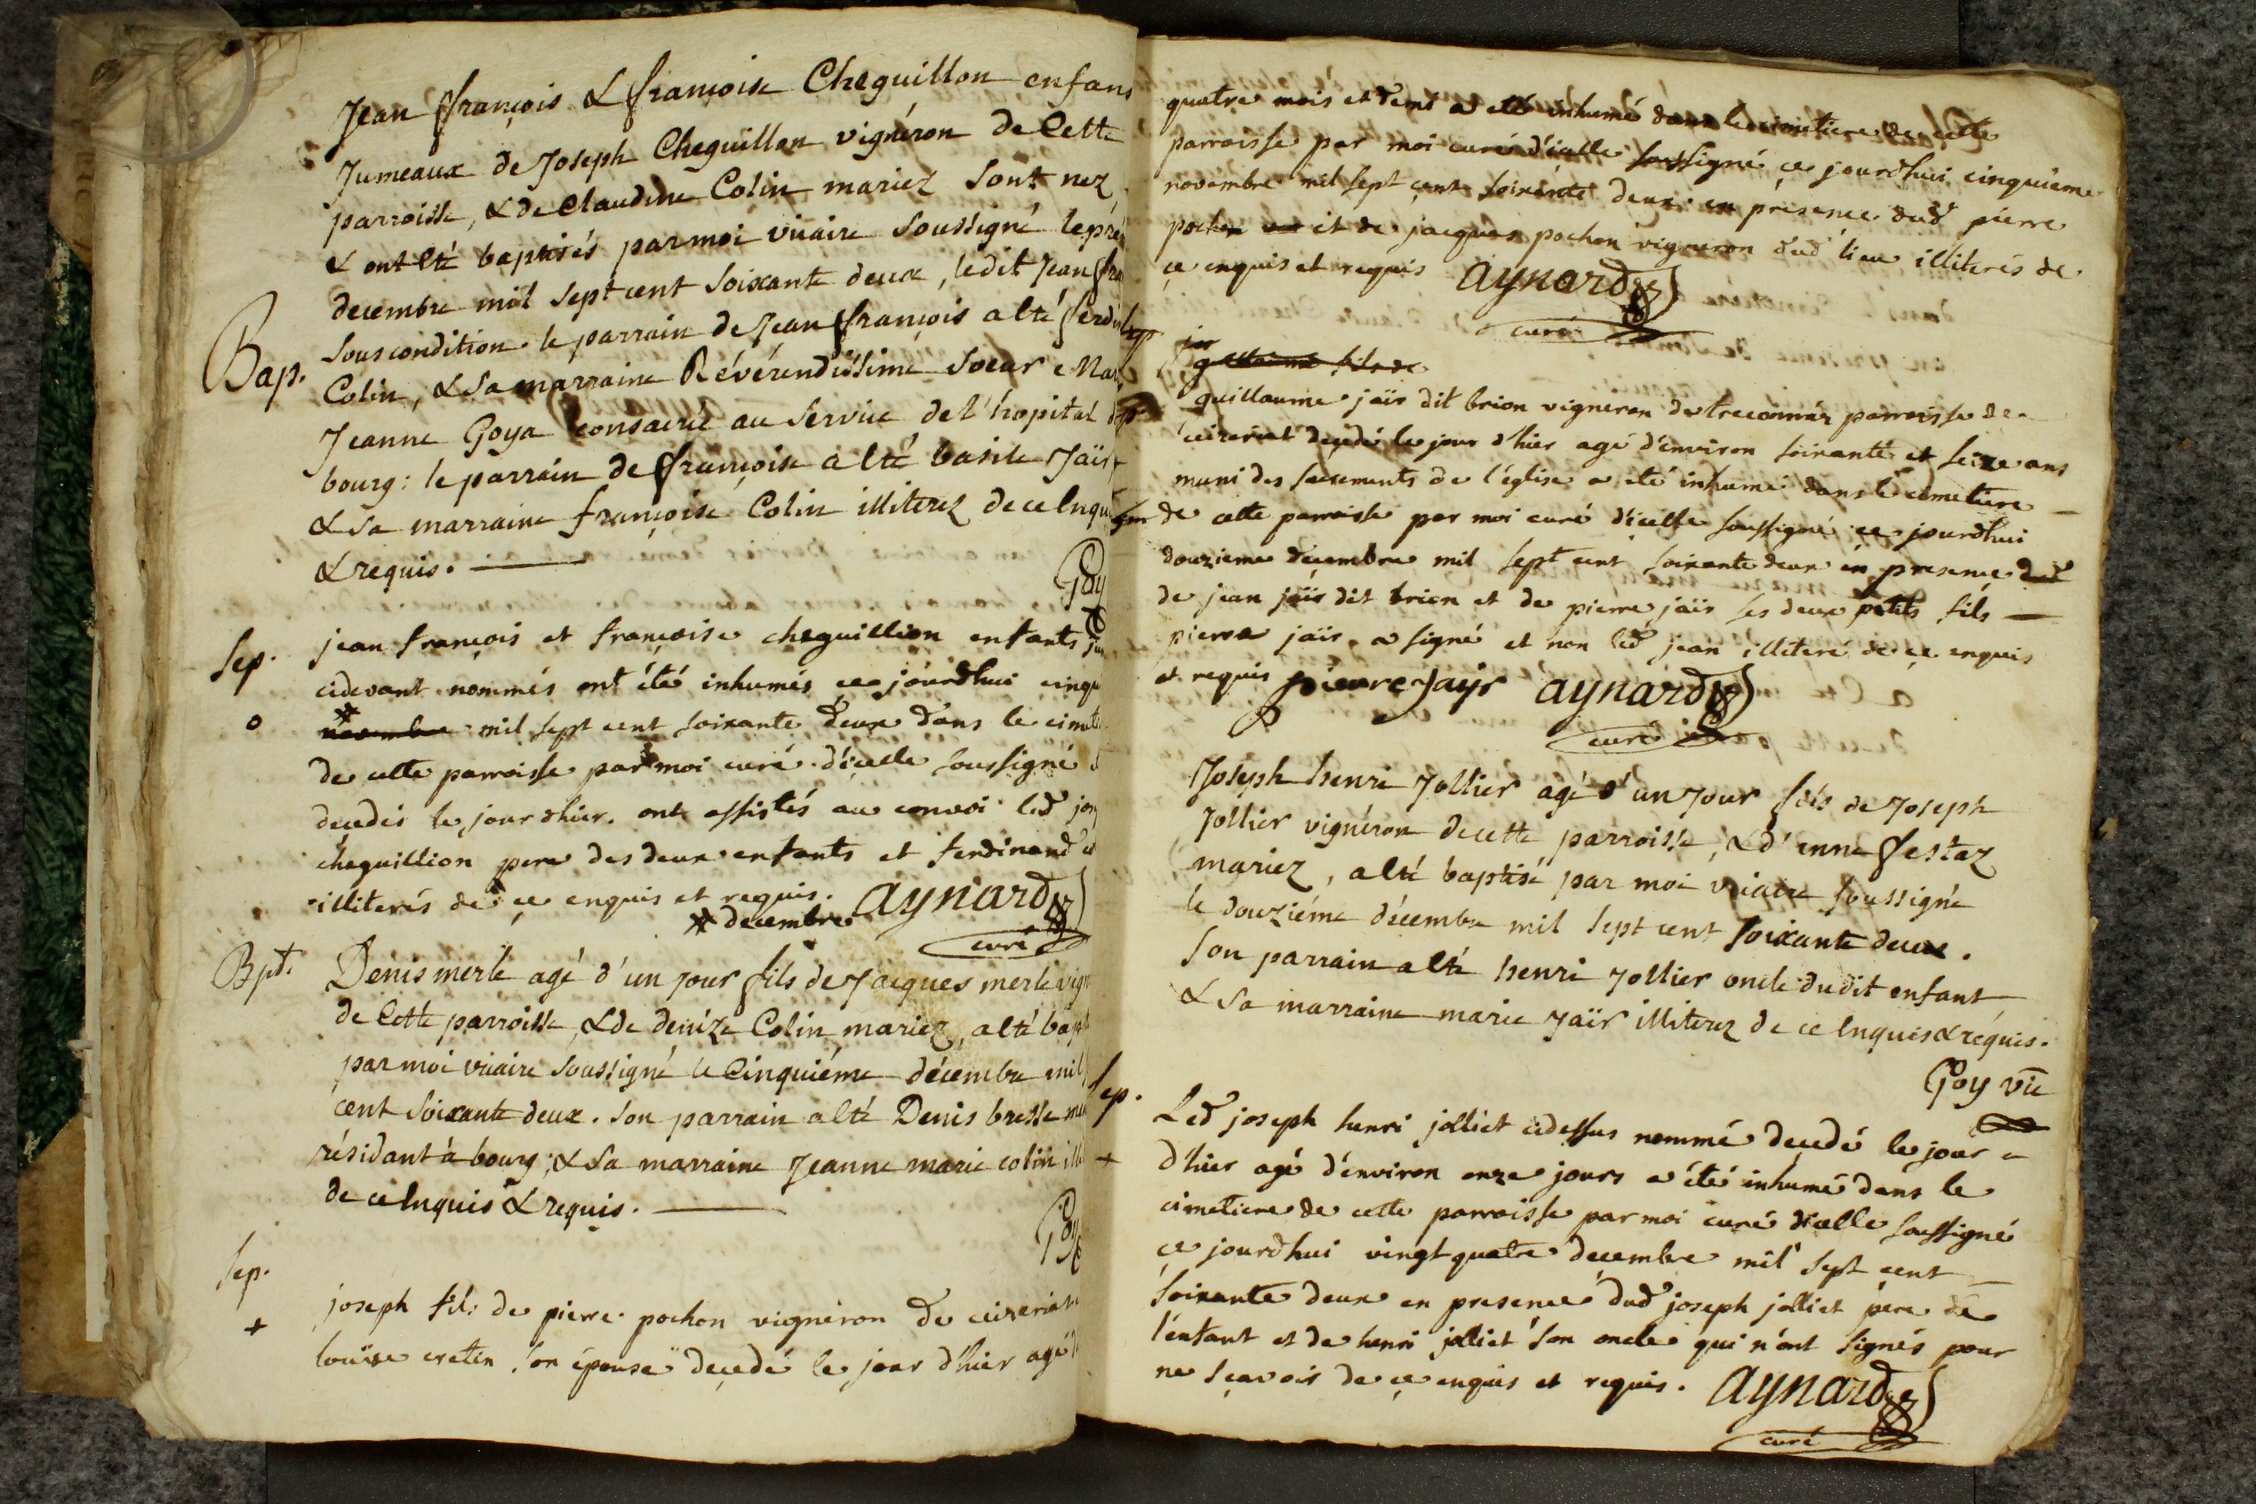 Jean françois & françoise Cheguillon enfans
Jumeaux de Joseph Cheguillon vignéron de Cette
parroisse, & de Claudine Colin mariez sont nez
& ont eté baptisés par moi viiaire soussigné le pré
decembre mil sept cent soixante deux, ledit Jean fra
Bap. sous condition. le parrain de Jean françois a eté ferdi
Colin, & sa marraine Révérendissime soeur Mar
Jeanne Goya consacrée au service de l'hopital d
bourg: le parrain de françoise a eté basile Jaïr
& sa marraine françoise Colin illiterez de ce Enqu
& requis.
Goy
Sep. jean françois et françoise cheguillion enfants ju
cidevant nommés ont été inhumés ce jourdhui cinqu
o * novembre mil sept cent soixante deux dans le cimeti
de cette parroisse par moi curé d'icelle soussigné
decedés le jour dhier. ont assistés au convoi led jos
cheguillion pere des deux enfants et ferdinand c
illiterés de ce enquis et requis. aynard
* decembre
curé
Bpt. Denis merle agé d'un jour fils de Jacques merle vign
de Cette parroisse, & de denize Colin mariez, a eté bapt
par moi viiaire soussigné le Cinquiéme décembre mil
cent soixante deux. son parrain a eté Denis bresse
résidant à bourg; & sa marraine Jeanne marie colin ill
de ce Enquis & requis.
Goy
Sep.
+ joseph fils de pierre pochon vigneron de ceizeriat
louïse cretin son épouse decedé le jour d'hier agé
quatre mois et demi a eté inhumé dans le cimetiere de cette
parroisse par moi curé d'icelle soussigné ce jourdhui cinquieme
novembre mil sept cent soixante deux en presence dud pierre
pochon et de jacques pochon vigneron dud lieu illiterés de
ce enquis et requis aynard
curé
guillaume fils de
guillaume jaïr dit brion vigneron de treconnas parroisse de
ceizeriat decedé le jour d'hier agé d'environ soixante et seize ans
muni des sacrements de l'église a eté inhumé dans le cimetiere
de cette parroisse par moi curé d'icelle soussigné ce jourdhui
douzieme decembre mil sept cent soixante deux en presence dud
de jean jaïr dit brion et de pierre jaïr ses deux petits fils
pierre jaïr a signé et non led jean illiteré de ce enquis
et requis pierre Jayr aynard
curé
Joseph henri Jollier agé d'un Jour fils de Joseph
Jollier vignéron de cette parroisse, & d'anne festaz
mariez, a eté baptisé par moi viiaire soussigné
le douziéme décembre mil sept cent soixante deux.
son parrain a eté henri Jollier oncle dudit enfant
& sa marraine marie Jaïr illiterez de ce Enquis & requis.
Goy vic
Sep. Led joseph henri jolliet cidessus nommé decedé le jour
+ d'hier agé d'environ onze jours a été inhumé dans le
cimetiere de cette parroisse par moi curé d'icelle soussigné
ce jourdhui vingt quatre decembre mil sept cent
soixante deux en presence dud joseph jolliet pere de
l'enfant et de henri jolliet son oncle qui n'ont signés pour
ne sçavoir de ce enquis et requis. aynard
curé